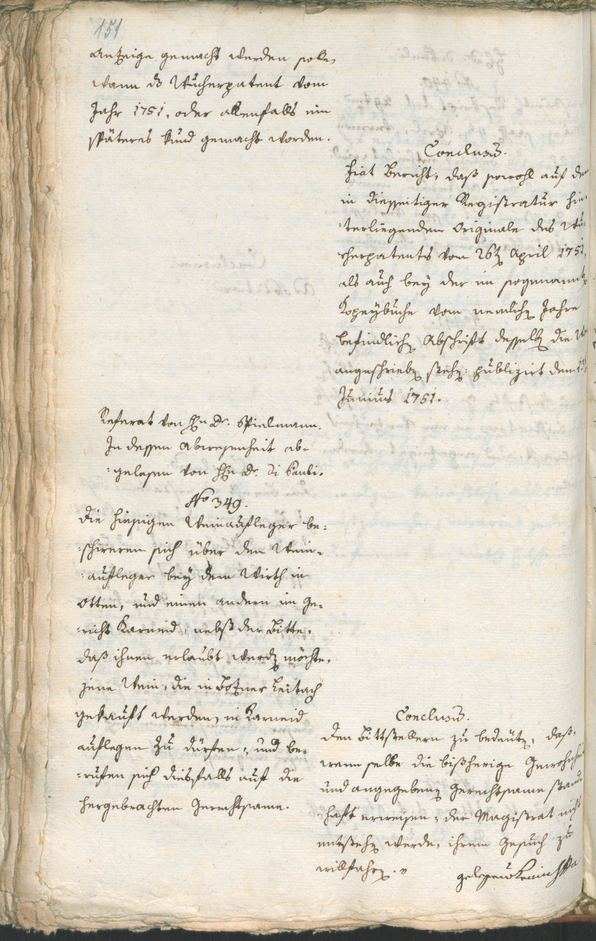 151
Anzeige gemacht werden solle,
wann das Wucherpatent vom
Jahr 1751, oder allenfalls ein
späteres kund gemacht worden.
Conclusum.
Fiat Bericht, daß sowohl auf der
in diesseitiger Registratur hin-
terliegenden Originale des Wu-
cherpatents von 26t April 1751,
als auch bey der im sogenannten
Kopeybuche vom nemlichen Jahre
befindlichen Abschrift desselben die
angeschrieben stehe: publizirt den
Junius 1751.
Referat von Hn Dr. Spielmann.
In dessen Abwesenheit ab-
gelesen von Hn Dr. Di Pauli.
No 349.
Die hiesigen Weinaufleger be-
schweren sich über den Wein-
aufleger bey dem Wirth in
Otten, und einen andern im Ge-
richt Karneid, nebst der Bitte,
daß ihnen erlaubt werden möchte,
jene Wein, die in Botzner Leitach
gekauft werden, in Karneid
auflegen zu dürfen, und be-
rufen sich diesfalls auf die
hergebrachten Gerechtsame.
Conclusum.
Den Bittstellern zu bedeuten, daß,
wenn selbe die bisherige Gewohnheit
und angegebenen Gerechtsame stand-
haft erweisen, der Magistrat nicht
entstehen werde, ihrem Gesuch zu
willfahren.